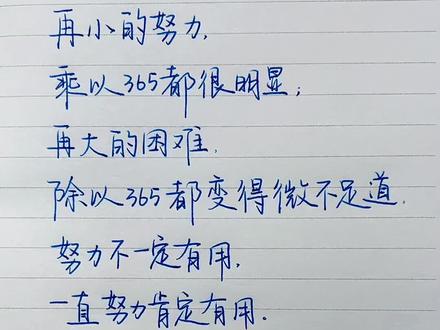 再小的努力,
乘以365都很明显;
再大的困难.
除以365都变得微不足道.
努力不一定有用,
一直努力肯定有用.